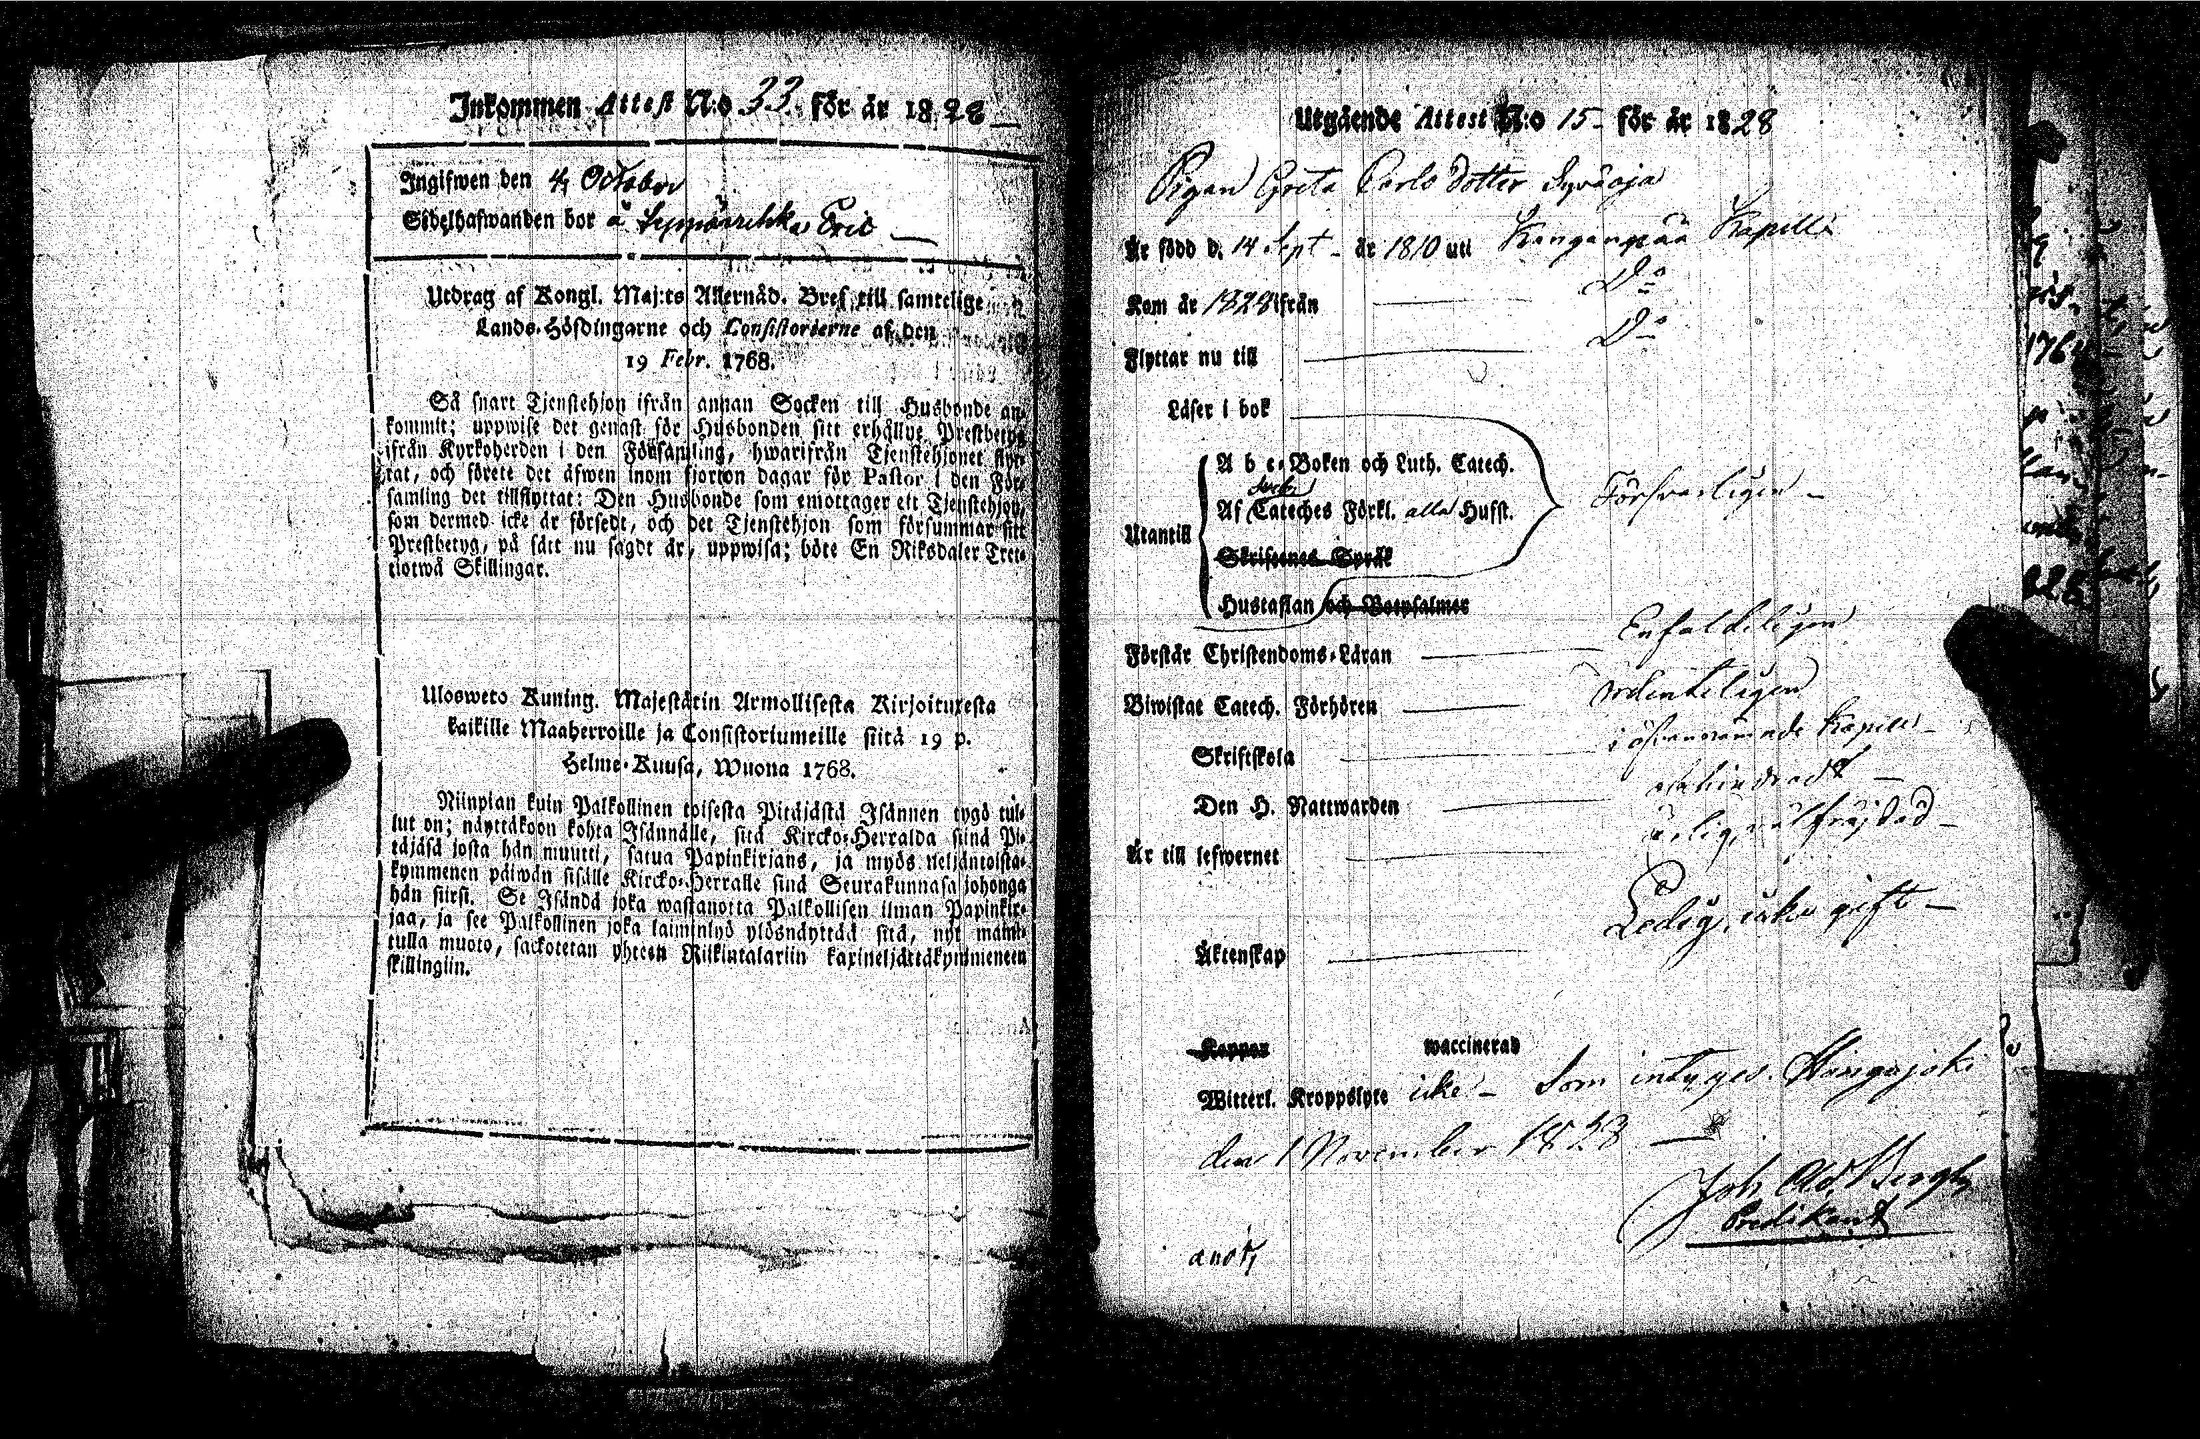 Inkommen Attest N:o 33 för år 1828
Ingifwen den 4 October
Sedelhafwanden bor å Eric
Utdrag af Kongl. Maj:ts Allernåd. Bref till samtelige
Lands-Höfdingarne och Consistorierne af den
19 Febr. 1768.
Så snart Tjenstehjon ifrån annan Socken till Husbonde an-
kommit; uppwise det genast för Husbonden sitt erhållne Prestbetyg
ifrån Kyrkoherden i den Församling, hwarifrån Tjenstehjonet flyt-
tat, och förete det äfwen inom fjorton dagar för Pastor i den För-
samling det tillflyttat: Den Husbonde som emottager ett Tjenstehjon,
som dermed icke är försedt, och det Tjenstehjon som försummar sitt
Prestbetyg, på sätt nu sagdt är, uppwisa; böte En Riksdaler Tret-
tiotwå Skillingar.
Ulosweto Kuning. Majestätin Armollisesta Kirjoituxesta
kaikille Maaherroille ja Consistoriumeille siitä 19 p.
Helme-Kuusa, Wuona 1768.
Niinpian kuin Palkollinen toisesta Pitäjästä Isännen tygö tul-
lut on; näyttäkoon kohta Isännälle, sitä Kircko-Herralda siinä Pi-
täjäsä josta hän muutti, saatua Papinkirjans, ja myös neljäntoista-
kymmenen päiwän sisälle Kircko-Herralle siinä Seurakunnasa johonga
hän siirsi. Se Isändä joka wastanotta Palkollisen ilman Papinkir-
jaa, ja see Palkollinen joka laiminlyö ylösnäyttää sitä, nyt maini-
tulla muoto, sackotetan yhteen Riikintalariin kaxineljättäkymmeneen
skillingiin.
Utgående Attest N:o 15 för år 1828
Pigan Greta Carls dotter Syväoja
Är född d. 14 Sept år 1810 uti Kanganpää Kapell
Kom år 1828 ifrån D:o
Flyttar nu till D:o
Läser i bok
A b c-Boken och Luth. Catech.
Utantill Af Cateches Förkl. alla Hufst. Försvarligen
Skriftenes Språk
Hustaflan och Botpsalmer
Förstår Christendoms-Läran Enfaldeligen
Biwistat Catech. Förhören ordenteligen
Skriftskola i ofvannämnde Kapell
Den H. Nattwarden obehindradt
Är till lefwernet ärlig, välfräjdad
Äktenskap Ledig, icke gift
Koppor waccinerad
Witterl. Kroppslyte icke Som intygas.
den 1 November 1828
Joh. Ad. Bergh
Predikant